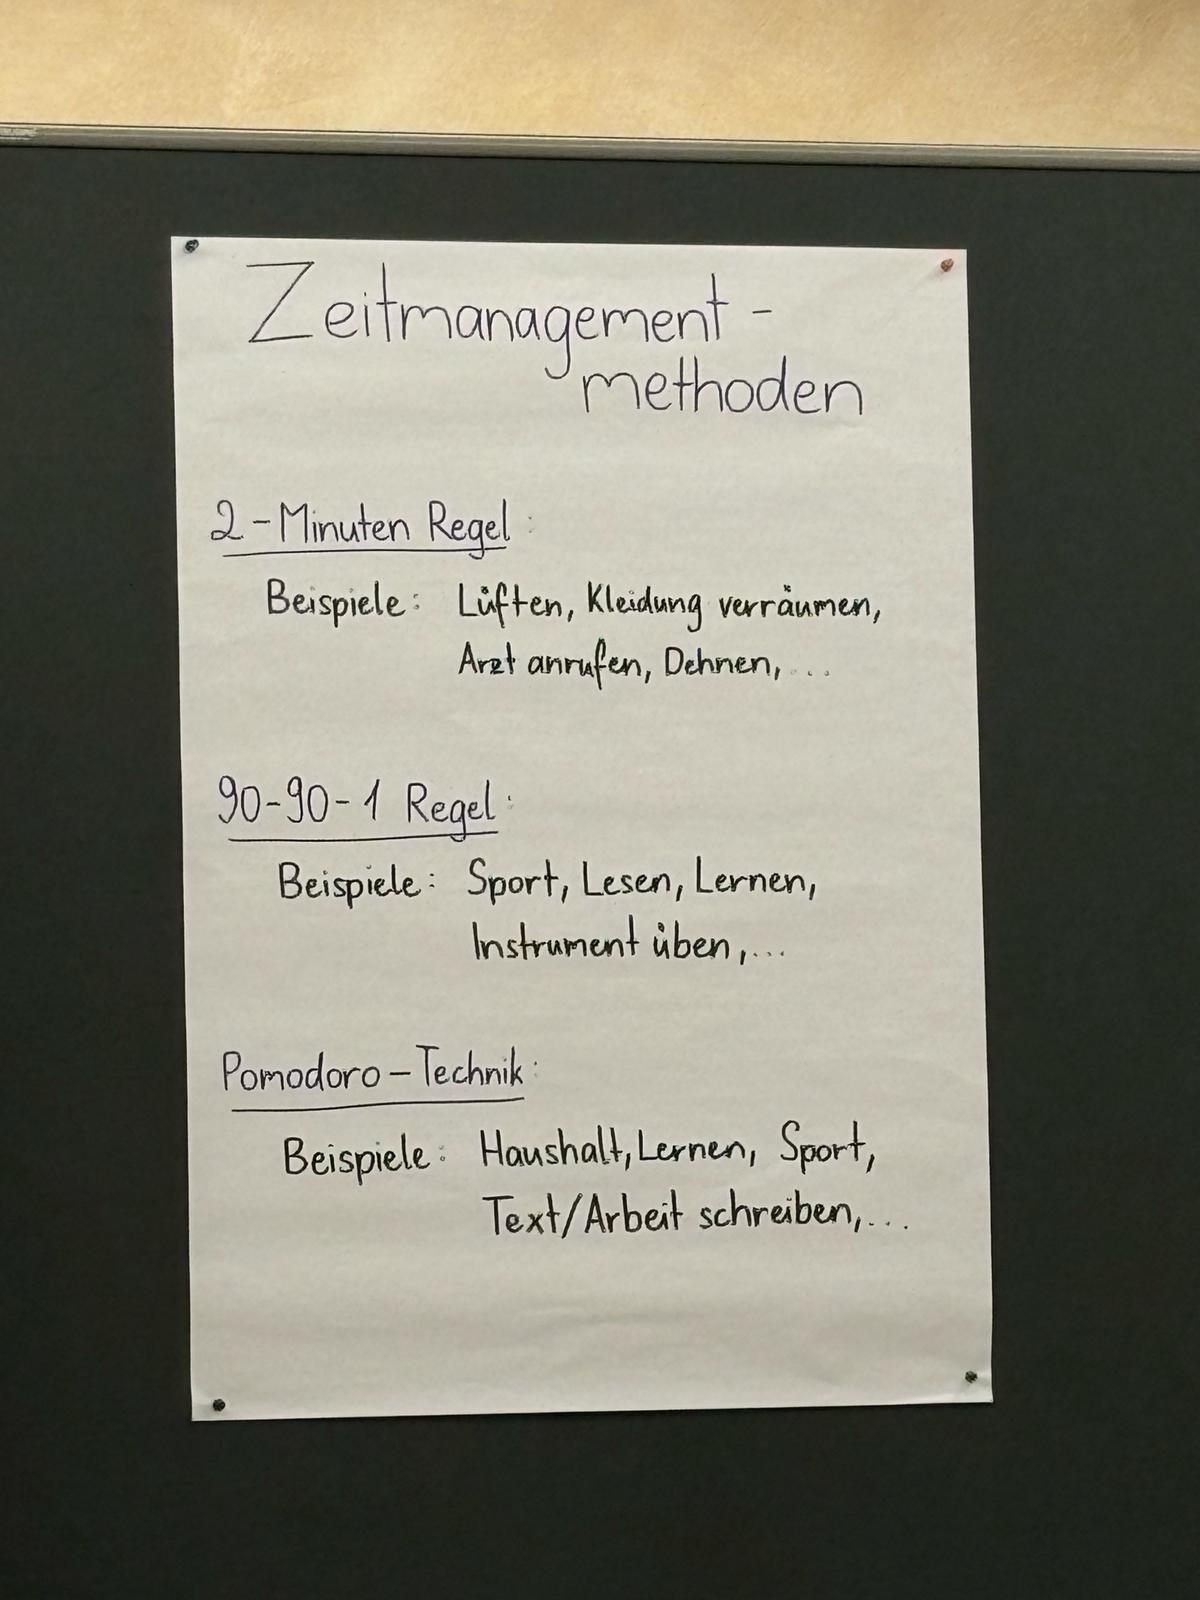 Zeitmanagement-
methoden
2-Minuten Regel:
Beispiele: Lüften, Kleidung verräumen,
Arzt anrufen, Dehnen, ...
90-90-1 Regel:
Beispiele: Sport, Lesen, Lernen,
Instrument üben, ...
Pomodoro-Technik:
Beispiele: Haushalt, Lernen, Sport,
Text/Arbeit schreiben, ...